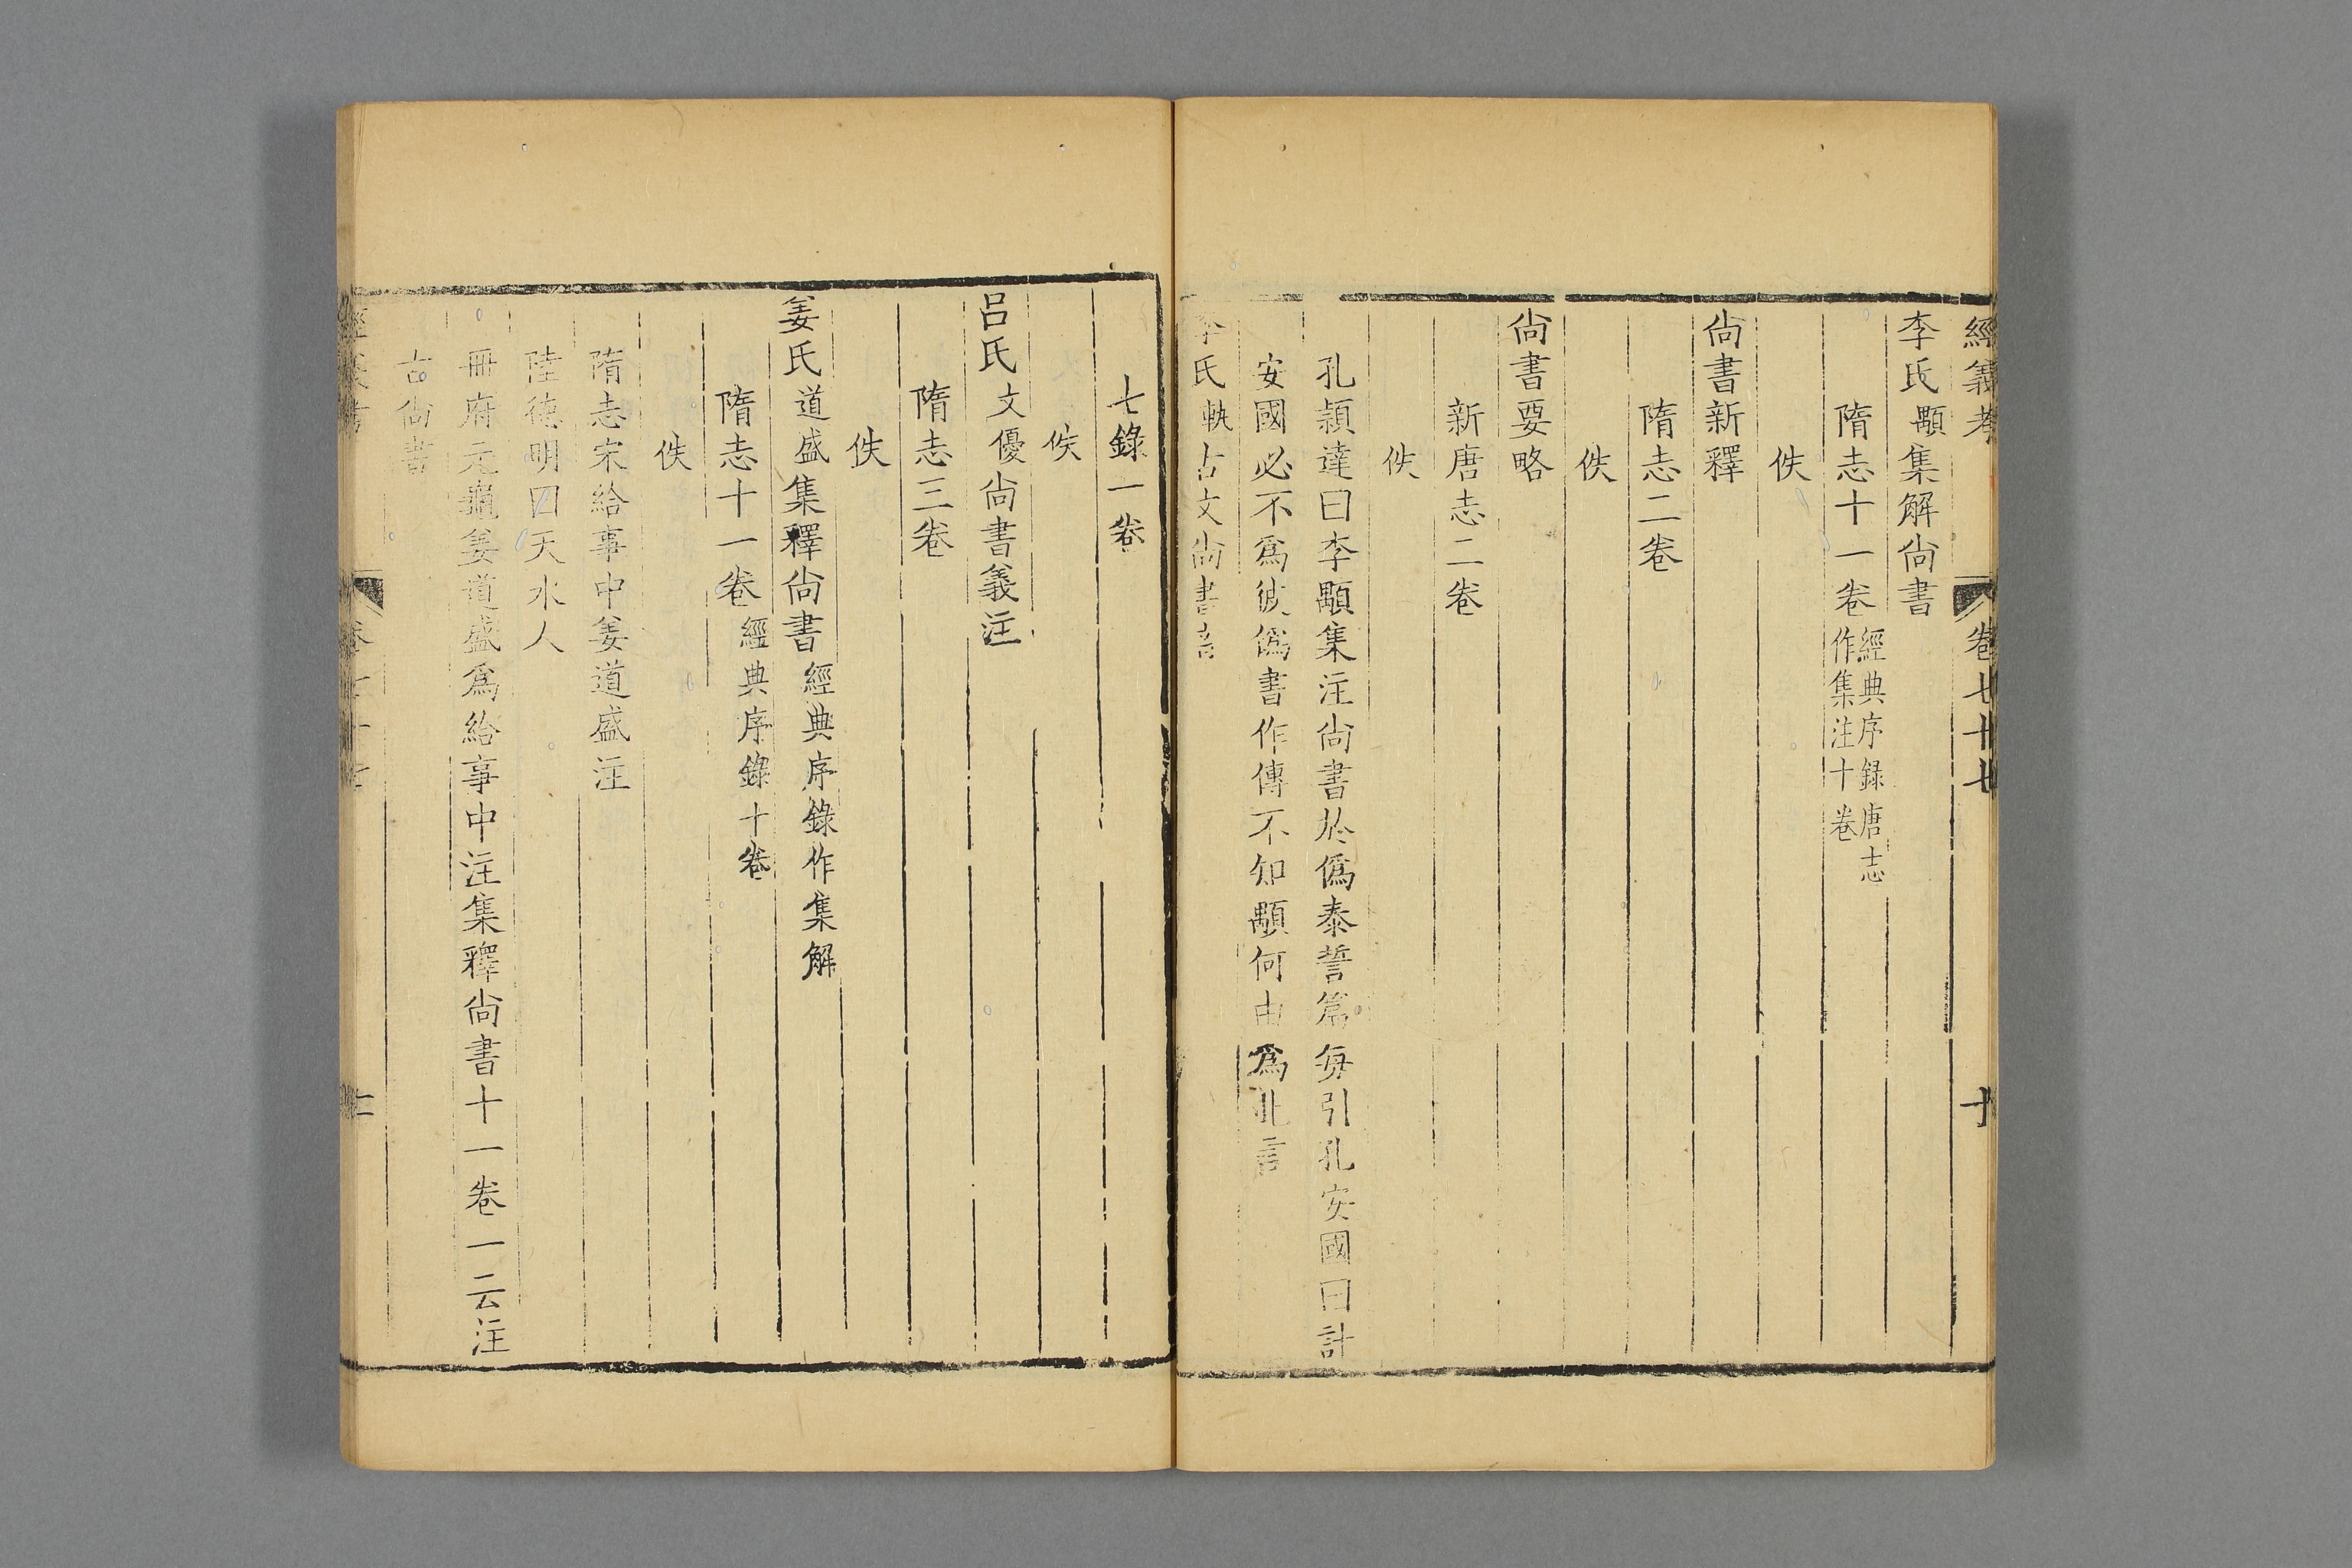 經義考 卷七十七 十
李氏顒集解尚書
隋志十一卷經典序録唐志
作集注十卷
佚
尚書新釋
隋志二卷
佚
尚書要略
新唐志二卷
佚
孔穎達曰李顒集注尚書於僞泰誓篇每引孔安國曰計
安國必不爲彼僞書作傳不知顒何由爲此言
李氏軌古文尚書音
七錄一卷
佚
呂氏文優尚書義注
隋志三卷
佚
姜氏道盛集釋尚書經典序錄作集解
隋志十一卷經典序錄十卷
佚
隋志宋給事中姜道盛注
陸德明曰天水人
冊府元龜姜道盛爲給事中注集釋尚書十一卷一云注
古尚書
經義考 卷七十七 十一